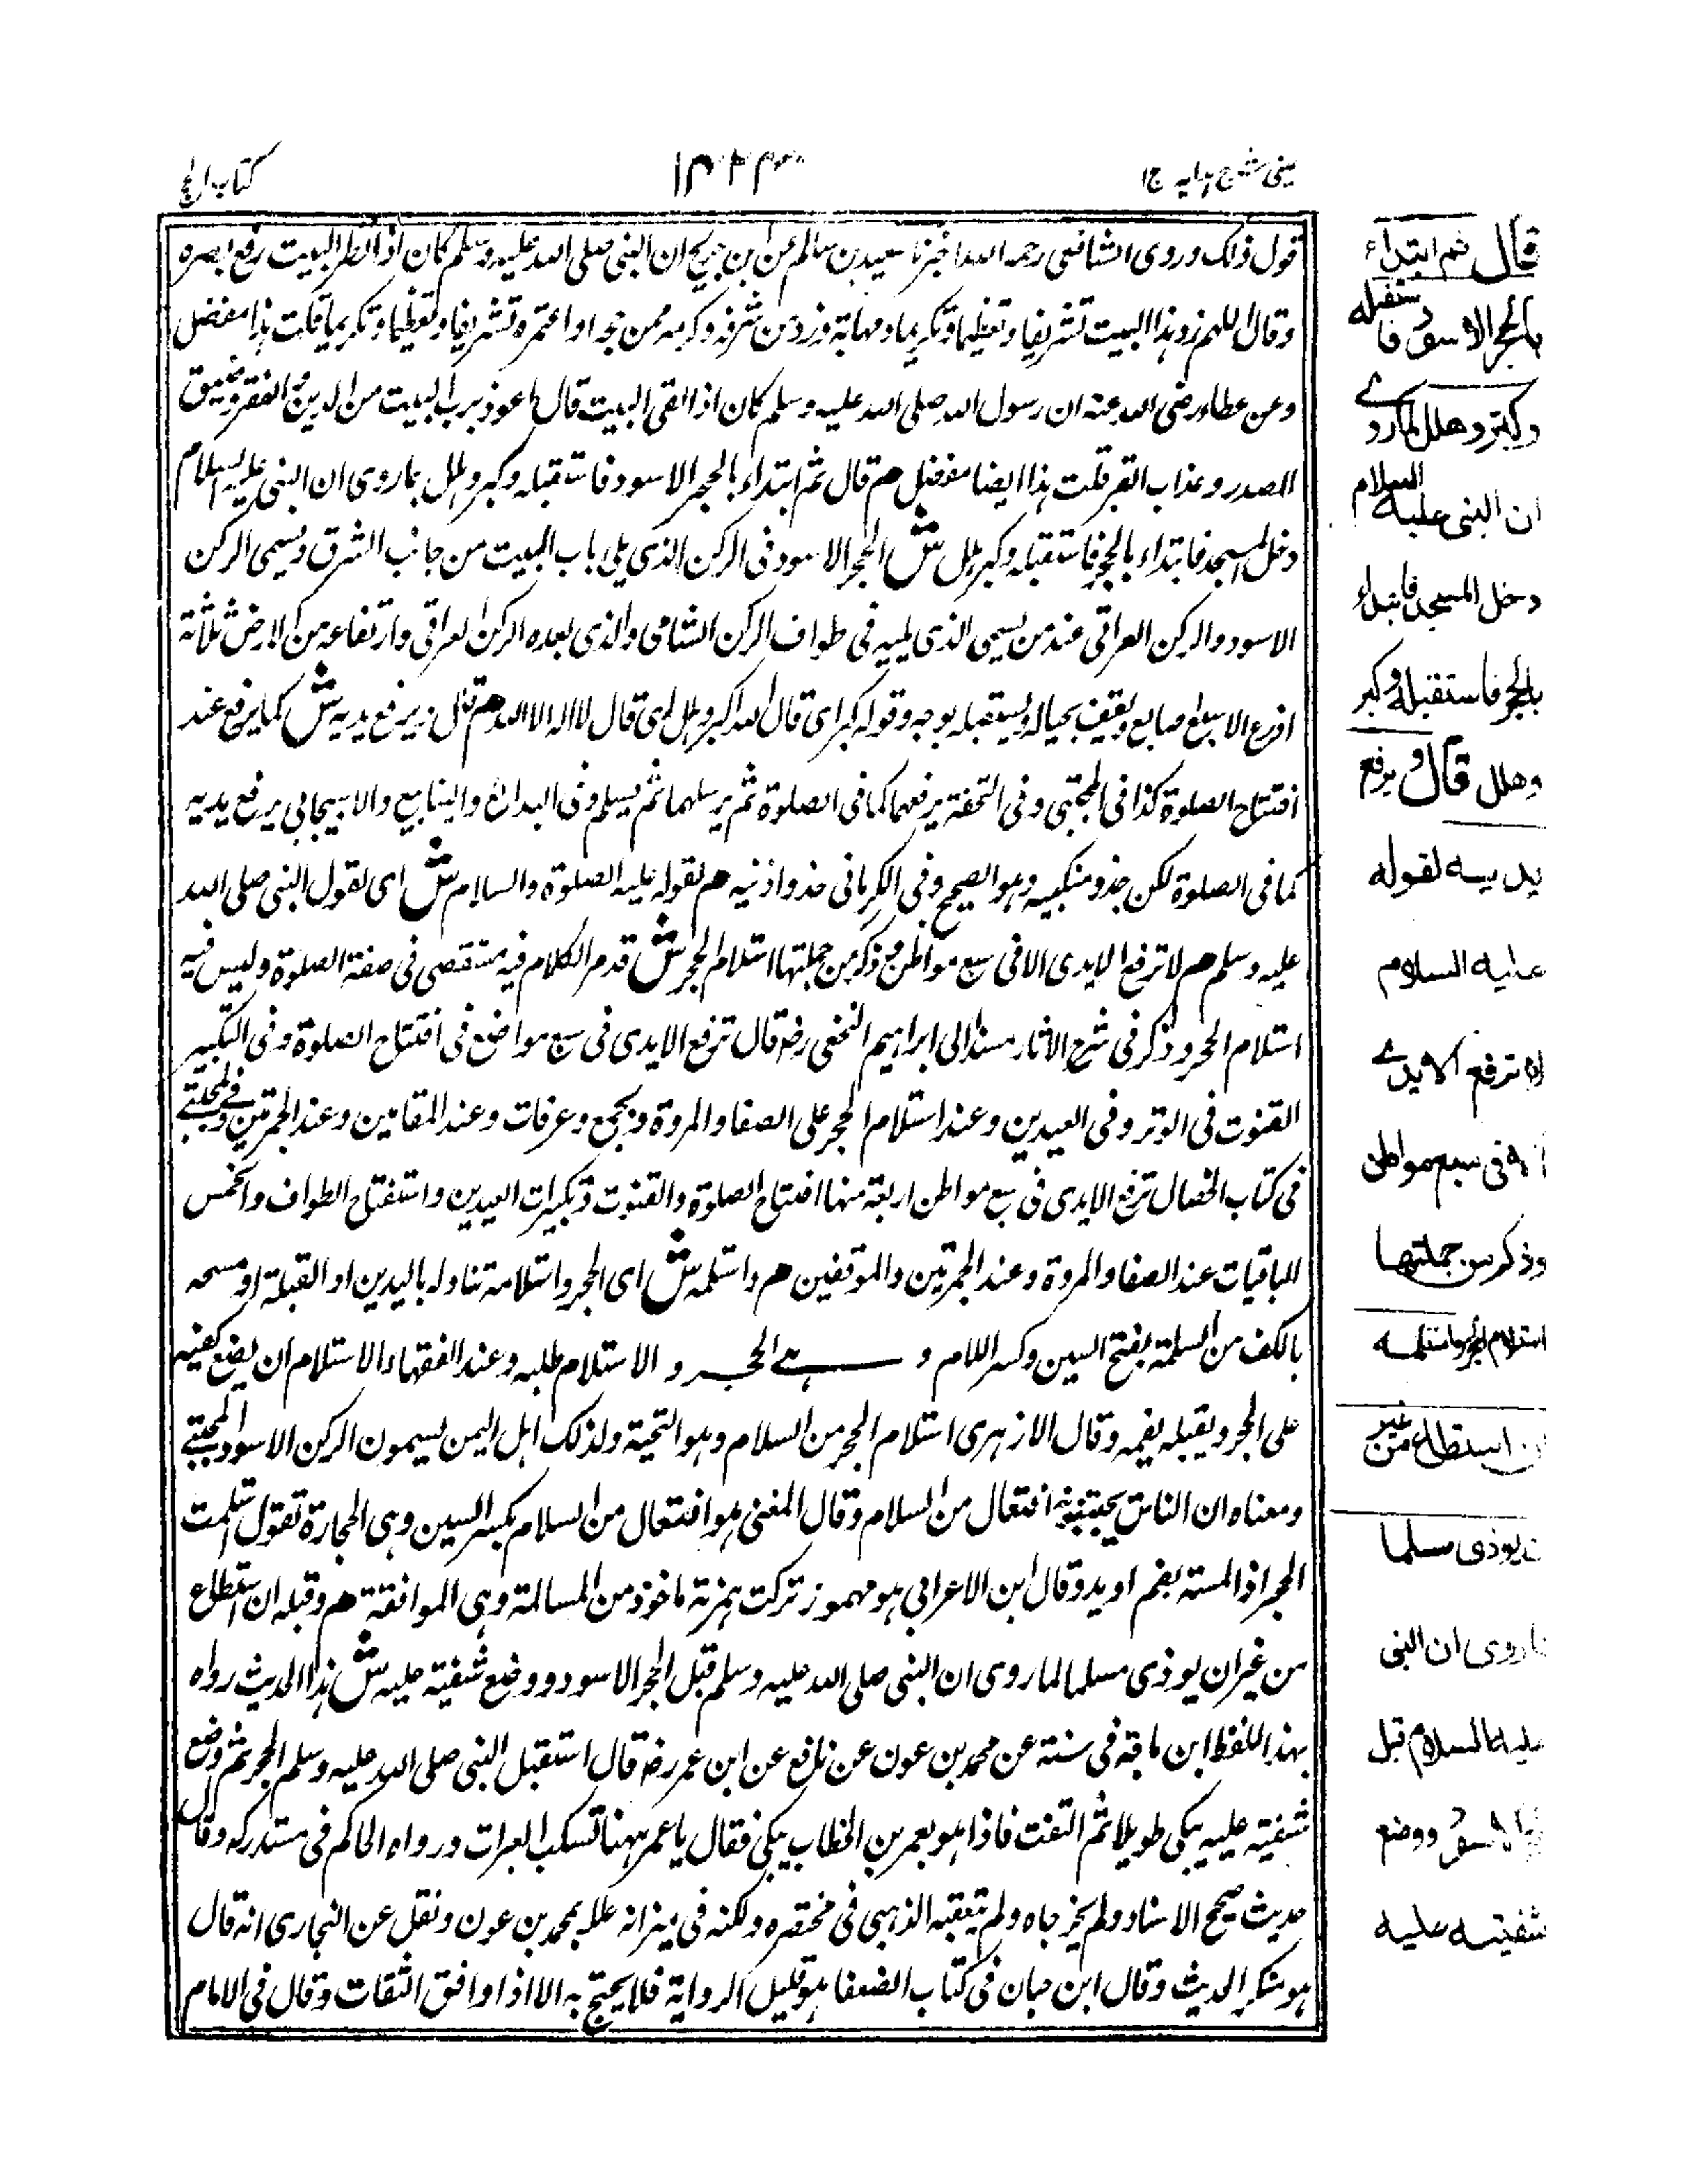 عینی شرح ہدایہ ج۱
۱۴۲۳
کتاب الحج
قول ذلک وروی الشافعی رحمہ اللہ اخبرنا سعید بن سالم عن ابن جریج ان النبی صلی اللہ علیہ وسلم کان اذا نظر البیت رفع بصرہ
وقال اللہم زد ہذا البیت تشریفا وتعظیما وتکریما ومہابۃ وزد من شرفہ وکرمہ ممن حجہ او اعتمرہ تشریفا وتعظیما وتکریما قلت ہذا معضل
وعن عطاء رضی اللہ عنہ ان رسول اللہ صلی اللہ علیہ وسلم کان اذا لقی البیت قال اعوذ برب البیت من الدین والفقر وضیق
الصدر وعذاب القبر قلت ہذا ایضا معضل م قال ثم ابتداء بالحجر الاسود فاستقبلہ وکبر وہلل بما روی ان النبی علیہ السلام
دخل المسجد فابتداء بالحجر فاستقبلہ وکبر وہلل ش الحجر الاسود فی الرکن الذی یلی باب البیت من جانب الشرق ویسمی الرکن
الاسود والرکن العراقی عند من یسمی الذی یلیہ فی طواف الرکن الشامی والذی بعدہ الرکن العراقی وارتفاعہ من الارض ثلاثۃ
اذرع الا سبع اصابع ویقف بحیالہ ویستقبلہ بوجہہ وقولہ کبر ای قال اللہ اکبر وہلل ای قال لا الہ الا اللہ م قال ویرفع یدیہ ش کما یرفع عند
افتتاح الصلوۃ کذا فی المجتبی وفی التحفۃ یرفعہما کما فی الصلوۃ ثم یرسلہما ثم یستلم وفی البدائع والینابیع والاسبیجابی یرفع یدیہ
کما فی الصلوۃ لکن حذو منکبیہ وہو الصحیح وفی الکرمانی حذو اذنیہ م لقولہ علیہ الصلوۃ والسلام ش ای لقول النبی صلی اللہ
علیہ وسلم م لا ترفع الایدی الا فی سبع مواطن وذکر من جملتہا استلام الحجر ش قدم الکلام فیہ مستقصی فی صفۃ الصلوۃ ولیس فیہ
استلام الحجر وذکر فی شرح الاثار مسندا الی ابراہیم النخعی رضہ قال ترفع الایدی فی سبع مواضع فی افتتاح الصلوۃ وفی التکبیر
القنوت فی الوتر وفی العیدین وعند استلام الحجر علی الصفا والمروۃ وبجمع وعرفات وعند المقامین وعند الجمرتین وفی المجتبے
فی کتاب الخصال ترفع الایدی فی سبع مواطن اربعۃ منہا افتتاح الصلوۃ والقنوت وتکبیرات العیدین واستفتاح الطواف والخمس
الباقیات عند الصفا والمروۃ وعند الجمرتین والموقفین م واستلمہ ش ای الحجر واستلامہ تناولہ بالیدین او القبلۃ او مسحہ
بالکف من السلمۃ بفتح السین وکسر اللام و ہے الحجر و الاستلام طلبہ وعند الفقہاء الاستلام ان یضع کفیہ
علی الحجر ویقبلہ بفمہ وقال الازہری استلام الحجر من السلام وہو التحیۃ ولذلک اہل الیمن یسمون الرکن الاسود المحیے
ومعناہ ان الناس یحیونہ افتعال من السلام وقال المغنی ہو افتعال من السلام بکسر السین وہی الحجارۃ تقول استلمت
الحجر اذا لمستہ بفم او ید وقال ابن الاعرابی ہو مہموز ترکت ہمزتہ ماخوذ من المسالمۃ وہی الموافقۃ م وقبلہ ان استطاع
من غیر ان یوذی مسلما لما روی ان النبی صلی اللہ علیہ وسلم قبل الحجر الاسود ووضع شفیتہ علیہ ش ہذا الحدیث رواہ
بہذا اللفظ ابن ماجۃ فی سننہ عن محمد بن عون عن نافع عن ابن عمر رضہ قال استقبل النبی صلی اللہ علیہ وسلم الحجر ثم وضع
شفیتہ علیہ یبکی طویلا ثم التفت فاذا ہو بعمر بن الخطاب یبکی فقال یا عمر ہہنا تسکب العبرات ورواہ الحاکم فی مستدرکہ وقال
حدیث صحیح الاسناد ولم یخرجاہ ولم یتعقبہ الذہبی فی مختصرہ ولکنہ فی میزانہ عللہ بمحمد بن عون ونقل عن البخاری انہ قال
ہو منکر الحدیث وقال ابن حبان فی کتاب الضعفا ہو قلیل الروایۃ فلا یحتج بہ الا اذا وافق الثقات وقال فی الامام
قال ثم ابتداء
بالحجر الاسود فاستقبلہ
وکبر وھلل لما روے
ان النبی علیہ السلام
دخل المسجد فابتداء
بالحجر فاستقبلہ وکبر
وھلل قال ویرفع
یدیہ لقولہ
علیہ السلام
لا ترفع الایدے
الا فی سبع مواطن
وذکر من جملتہا
استلام الحجر واستلمہ
ان استطاع من غیر
ان یوذی مسلما
لما روی ان النبی
علیہ السلام قبل
الحجر الاسود ووضع
شفیتہ علیہ